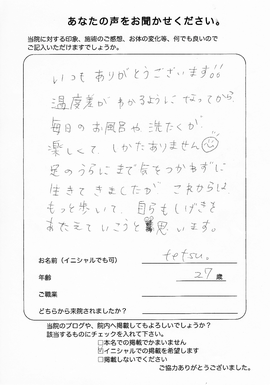 あなたの声をお聞かせください。
当院に対する印象、施術のご感想、お体の変化等、何でも良いので
ご記入いただけますでしょうか。
いつもありがとうございます!!
温度差がわかるようになってから
毎日のお風呂や洗たくが
楽しくてしかたありません
足のうらにまで気をつかわずに
生きてきましたが これからは
もっと歩いて、自らもしげきを
あたえていこうと思います。
お名前(イニシャルでも可) tetsu.
年齢 27歳
ご職業
どちらから来院されましたか?
当院のブログや、院内へ掲載してもよろしいでしょうか?
該当するものにチェックを入れて下さい。
□本名での掲載でかまいません
☑イニシャルでの掲載を希望します
□掲載しないでください
ご協力ありがとうございました。